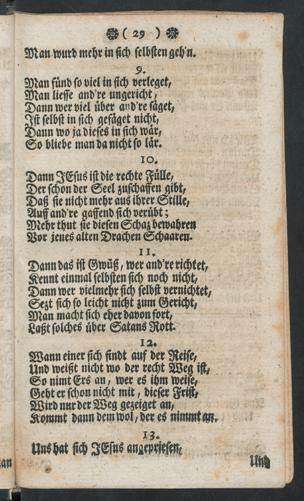 ( 29 )
Man wurd mehr in sich selbsten geh'n.
9.
Man fünd so viel in sich verleget,
Man liesse and're ungericht,
Dann wer viel über and're säget,
Ist selbst in sich gesäget nicht,
Dann wo ja dieses in sich wär,
So bliebe man da nicht so lär.
10.
Dann JEsus ist die rechte Fülle,
Der schon der Seel zuschaffen gibt,
Daß sie nicht mehr aus ihrer Stille,
Auff and're gaffend sich verübt;
Mehr thut sie diesen Schaz bewahren
Vor jenes alten Drachen Schaaren.
11.
Dann das ist Gwüß, wer and're richtet,
Kennt einmal selbsten sich noch nicht,
Dann wer vielmehr sich selbst vernichtet,
Sezt sich so leicht nicht zum Gericht,
Man macht sich eher davon fort,
Laßt solches über Satans Rott.
12.
Wann einer sich findt auf der Reise,
Und weißt nicht wo der recht Weg ist,
So nimt Ers an, wer es ihm weise,
Geht er schon nicht mit, dieser Frist,
Wird nur der Weg gezeiget an,
Kommt dann dem wol, der es nimmt an.
13.
Uns hat sich JEsus angepriesen,
Und